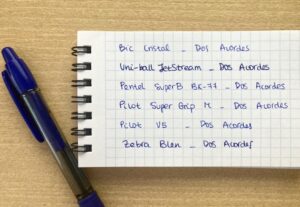 Bic Cristal - Dos Acordes
Uni-ball JetStream - Dos Acordes
Pentel SuperB BK-77 - Dos Acordes
Pilot Super Grip M - Dos Acordes
Pilot V5 - Dos Acordes
Zebra Blen - Dos Acordes